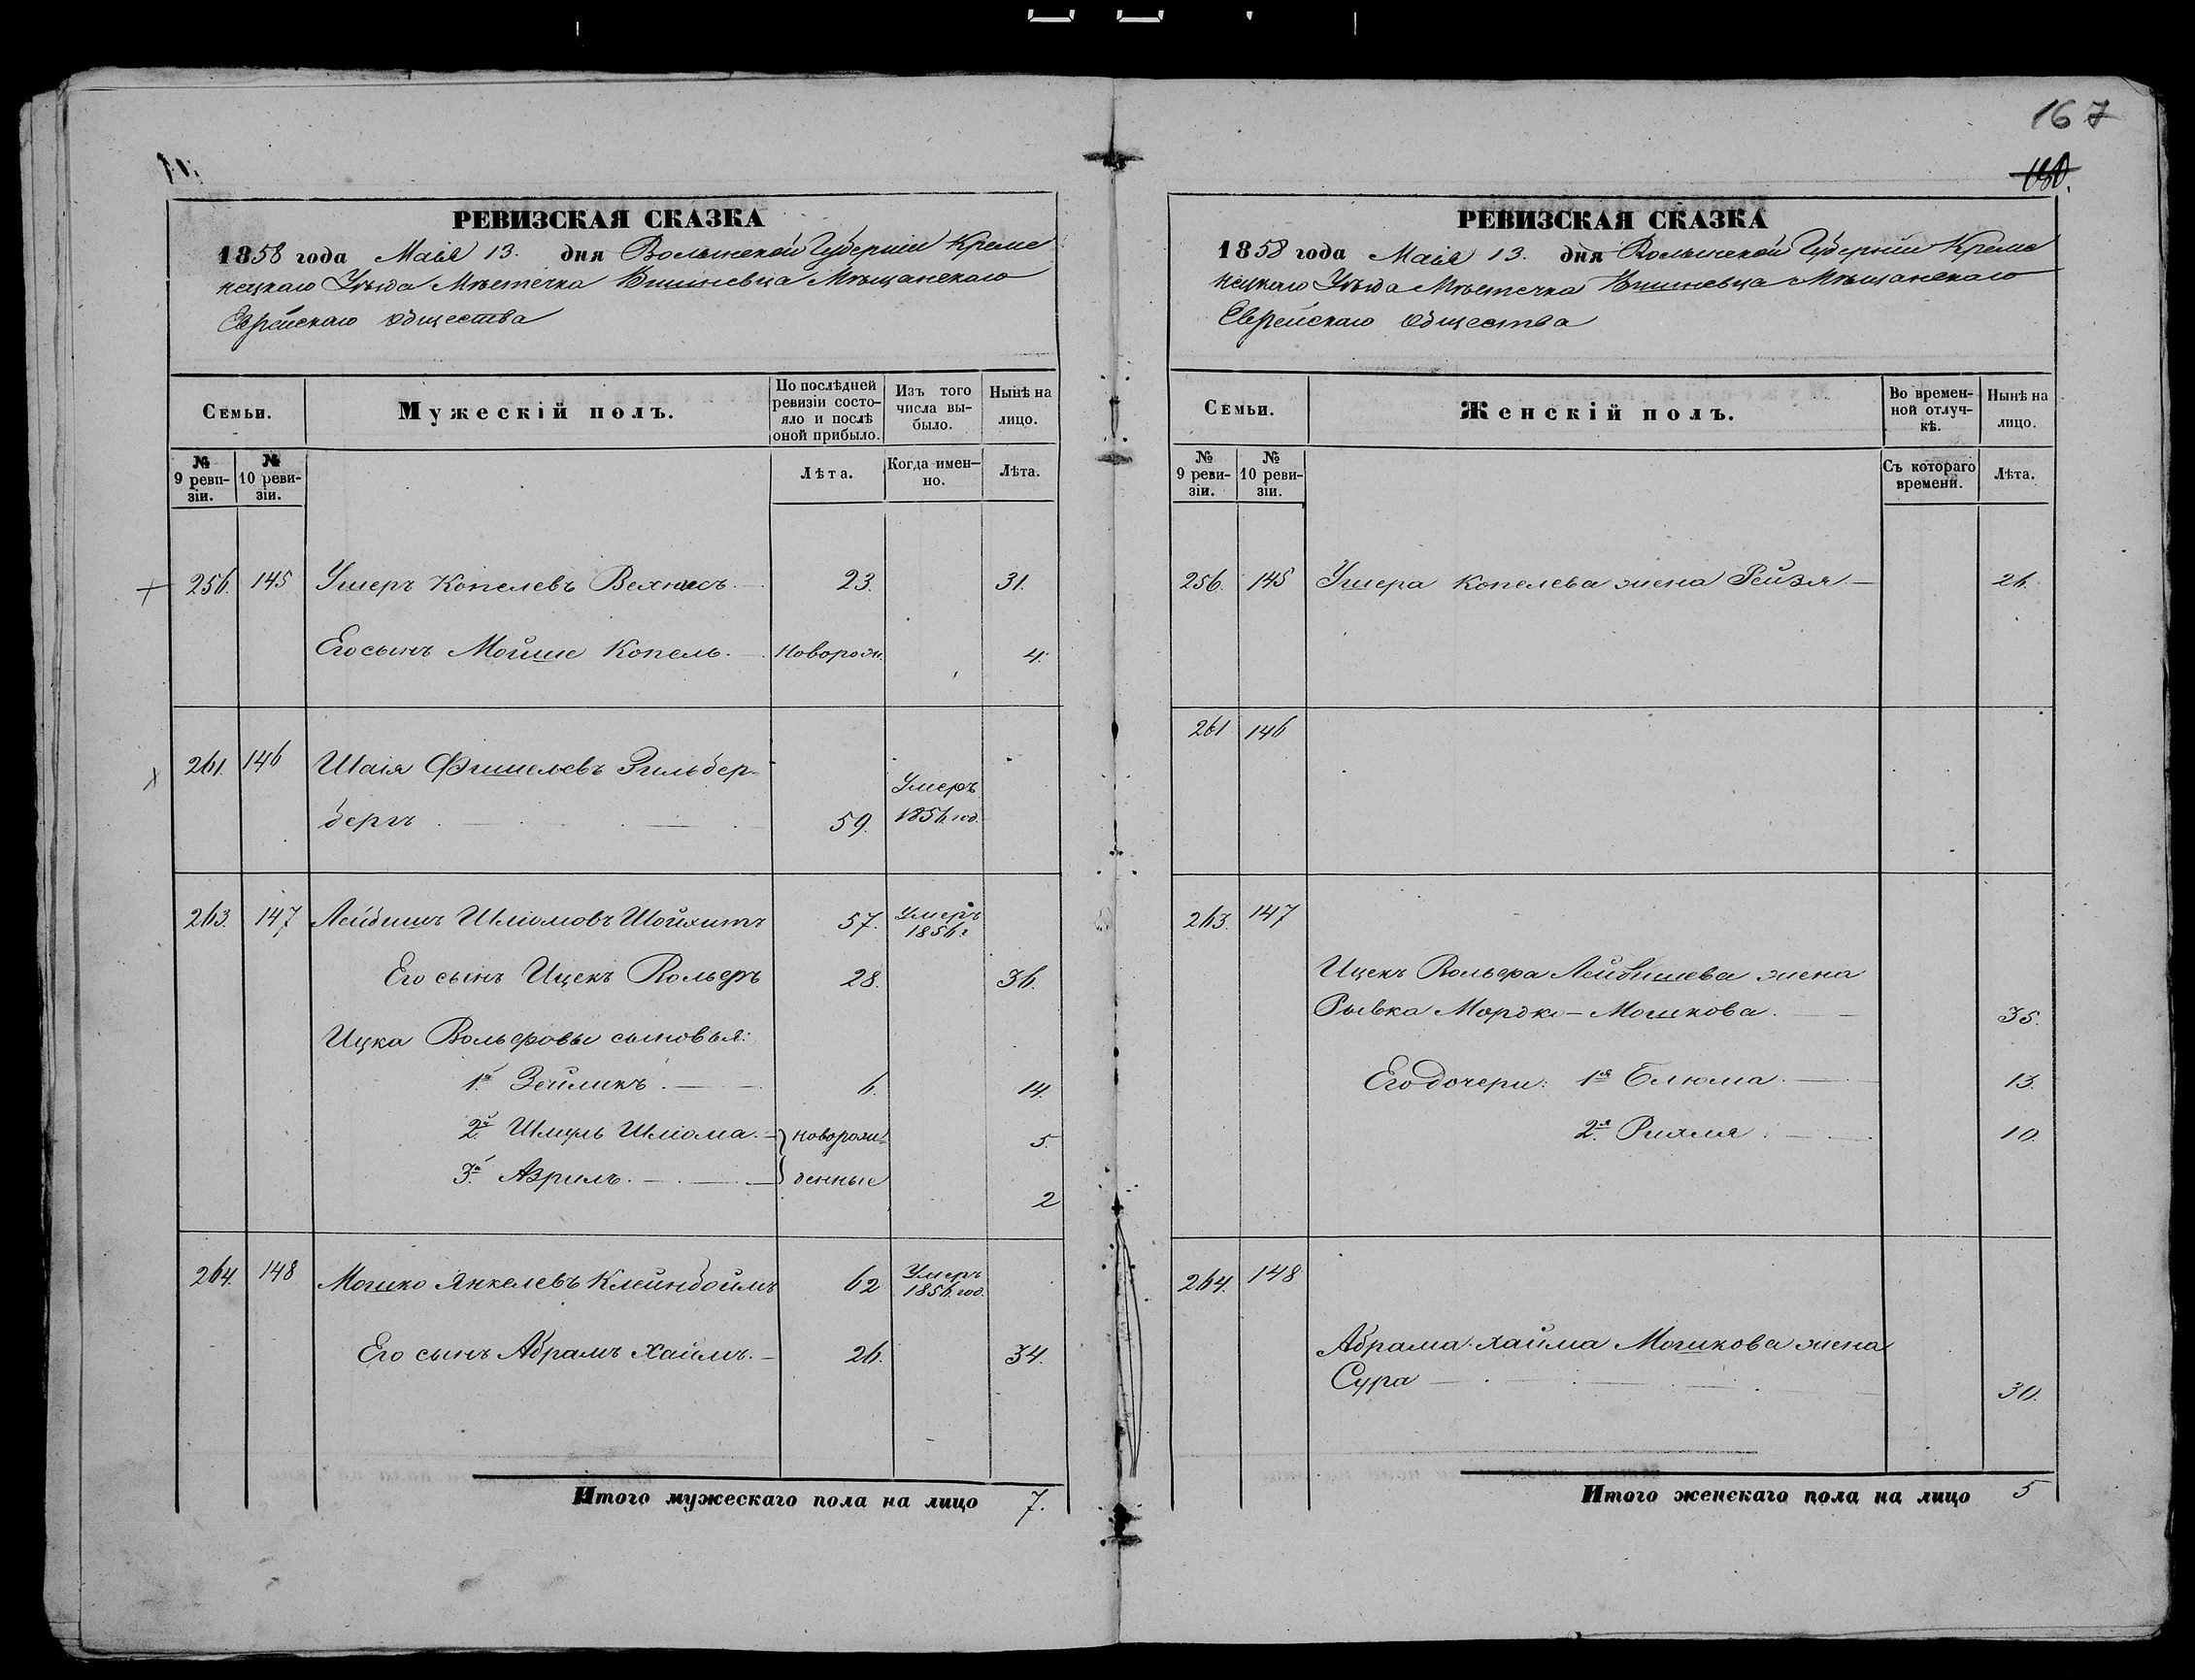 167
РЕВИЗСКАЯ СКАЗКА
1858 года Маія 13. дня Волынской Губерніи Креме
нецкаго Уѣзда Мѣстечка Вишневца Мѣщанскаго
Еврейскаго общества
Семьи.
Мужескій полъ.
По послѣдней ревизіи состо-
яло и послѣ
оной прибыло.
Изъ того
числа вы-
было.
Нынѣ на
лицо.
№
9 реви-
зіи.
№
10 реви-
зіи.
Лѣта.
Когда имен-
но.
Лѣта.
256. 145 Ушеръ Копелевъ 23. 31.
Его сынъ Мойше Копель. Новорож. 4.
261. 146 Шаія Фишелевъ Зильбер-
бергъ 59. Умеръ 1856. год.
263. 147 Лейбишъ Шліомовъ Шойхитъ 57. Умеръ 1856.
Его сынъ Ицекъ Вольфъ 28. 36.
Ицка Вольфовы сыновья:
1й Зейликъ. 6. 14.
2й Шмуль Шліома. новорож- 5.
3й Азриль. денные 2
264. 148 Мошко Янкелевъ Клейнбоймъ 62 Умеръ 1856. год.
Его сынъ Абрамъ Хаимъ. 26. 34.
Итого мужескаго пола на лицо 7.
РЕВИЗСКАЯ СКАЗКА
1858 года Маія 13. дня Волынской Губерніи Креме
нецкаго Уѣзда Мѣстечка Вишневца Мѣщанскаго
Еврейскаго общества
Семьи.
Женскій полъ.
Во времен-
ной отлуч-
кѣ.
Нынѣ на
лицо.
№
9 реви-
зіи.
№
10 реви-
зіи.
Съ котораго
времени.
Лѣта.
256. 145 Ушера Копелева жена Рейзя 26.
261 146
263. 147
Ицекъ Вольфа Лейбишева жена
Рывка Мордко-Мошкова. 35.
Его дочери: 1я Блюма. 13.
2я Рихля 10.
264. 148
Абрама Хаима Мошкова жена
Сура 30.
Итого женскаго пола на лицо 5